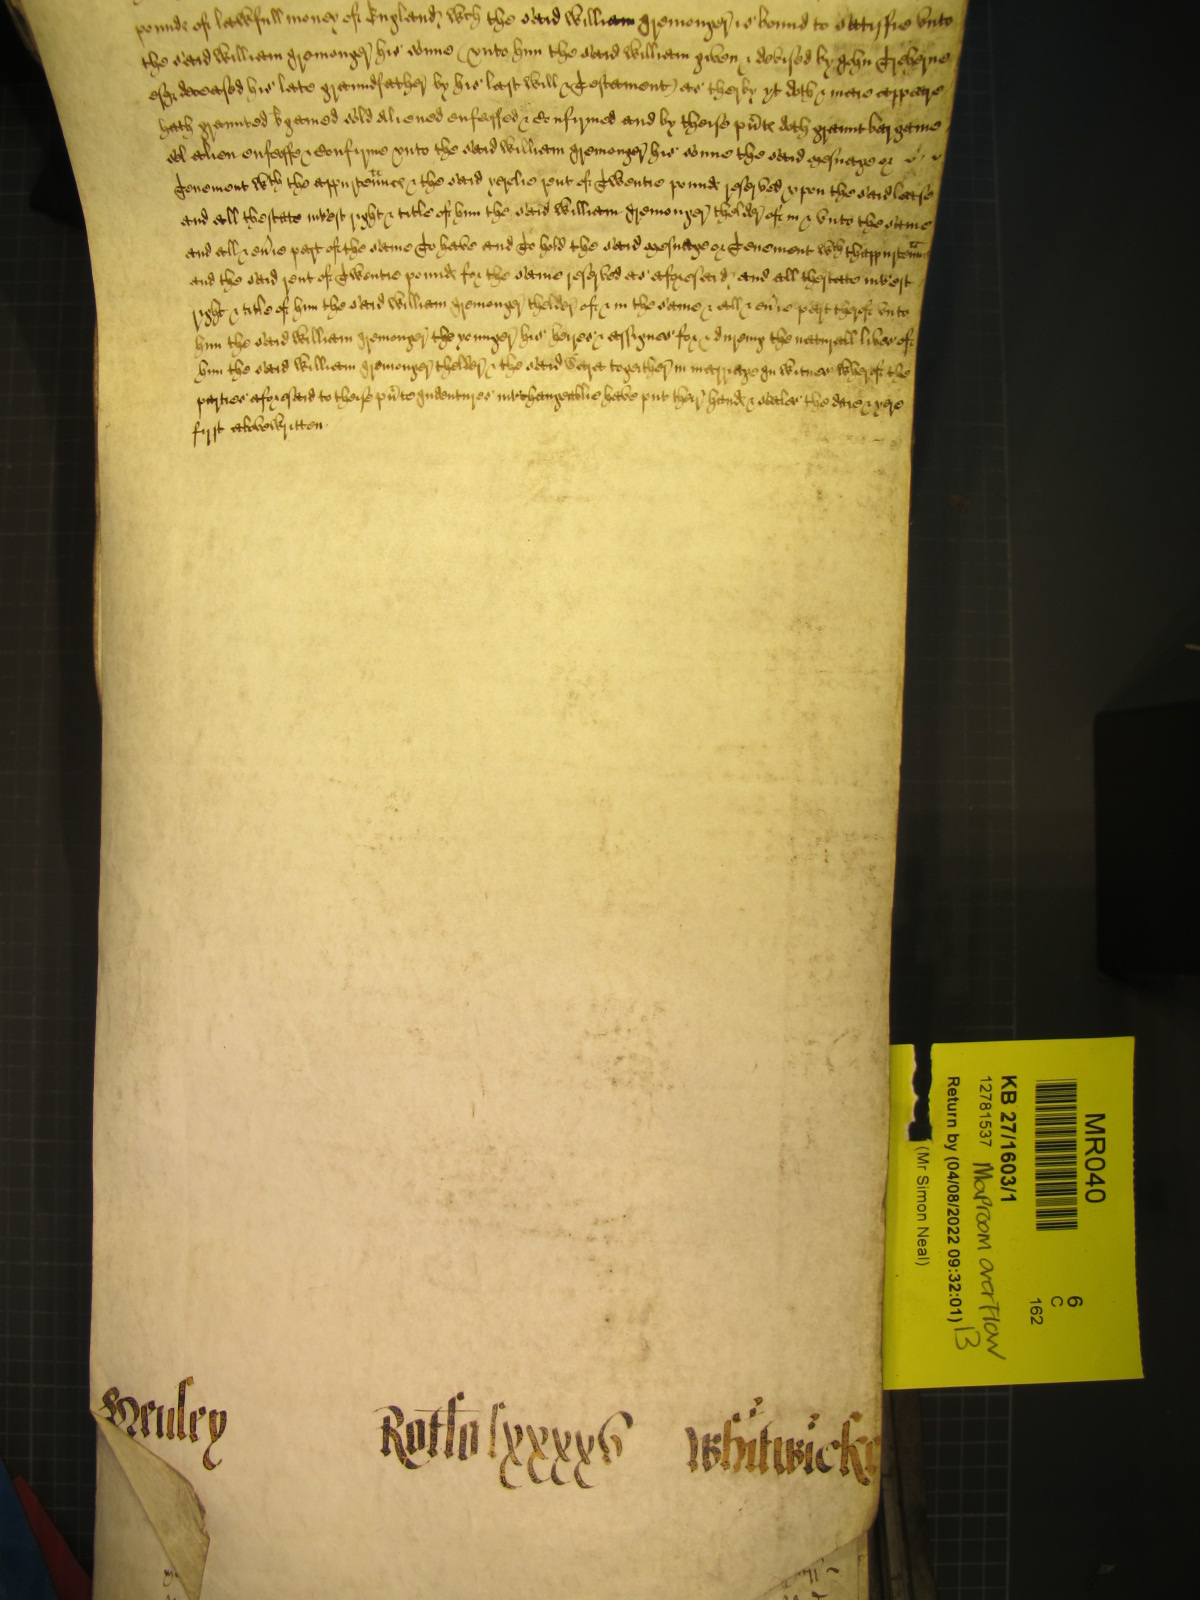 pounde of lawfull money of England, wch the said william Iremonger is bound to satisfie vnto
the said william Iremonger his sonne (vnto him the said william given & devised by John Treherne
esqr deceased his late graundfather by his last will & Testament) as therby yt doth & maie appeare
hath graunted bgained sold aliened enfeaffed & confirmed and by theise pnte doth graunt bargaine
sell alien enfeaffe & confirme vnto the said william Iremonger his sonne the said mesuage or
Tenement wth the appurtennce & the said yerelie rent of Twentie pounde reserved vpon the said lease
and all thestate intrest right & title of him the said william Iremonger thelder of in & vnto the same
and all & evie part of the same To have and To hold the said mesuage or Tenement wth thappurtennce
and the said rent of Twentie pounde for the same reserved as aforesaid, and all thestate intrest
right & title of him the said william Iremonger thelder of & in the same & all & evie part therof vnto
him the said william Iremonger the younger his heires & assignes for & during the naturall lives of
him the said william Iremonger thelder & the said together in marriage In witnes wherof the
parties aforesaid to theise pnte Indentures intrchangeablie have put their hande & seales the daie & yere
first abovewritten
Henley Rotlo lxxxxv Whitwicke
MR040
6
C
162
KB 27/1603/1
12781537 Maproom overflow
13
Return by (04/08/2022 09:32:01)
(Mr Simon Neal)